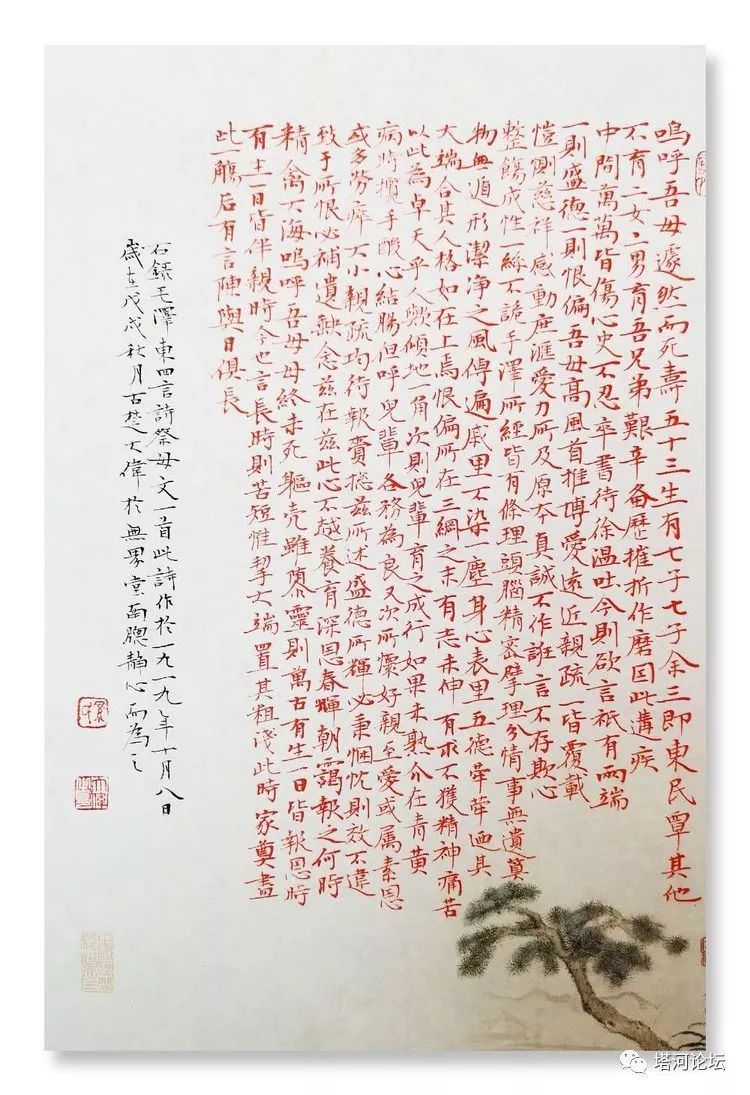 嗚呼吾母遽然而死壽五十三生有七子七子余三即東民覃其他
不育二女二男育吾兄弟艱辛備歷摧折作磨因此遘疾
中間萬萬皆傷心史不忍卒書待徐溫吐今則欲言祇有兩端
一則盛德一則恨偏吾母高風首推博愛遠近親疏一皆覆載
愷惻慈祥感動庶滙愛力所及原本真誠不作誑言不存欺心
整飭成性一絲不詭手澤所經皆有條理頭腦精密擘理分情事無遺算
物無遁形潔净之風傳遍戚里不染一塵身心表里五德犖犖迺其
大端合其人格如在上焉恨偏所在三綱之末有志未伸有求不獲精神痛苦
以此為卓天乎人歟傾地一角次則兒輩育之成行如果未熟介在青黃
病時攬手酸心結腸但呼兒輩各務為良又次所懷好親至愛或屬素恩
或多勞瘁大小親疏均待報賚總茲所述盛德所輝必秉悃忱則效不違
致于所恨必補遺缺念茲在茲此心不越養育深恩春暉朝靄報之何時
精禽大海嗚呼吾母母終未死軀壳雖隳靈則萬古有生一日皆報恩時
有生一日皆伴親時今也言長時則苦短惟挈大端置其粗淺此時家奠盡
此一觴后有言陳與日俱長
右錄毛澤東四言詩祭母文一首此詩作於一九一九年十月八日
歲在戊戌秋月古楚大偉於無界堂南牕静心而為之
塔河论坛